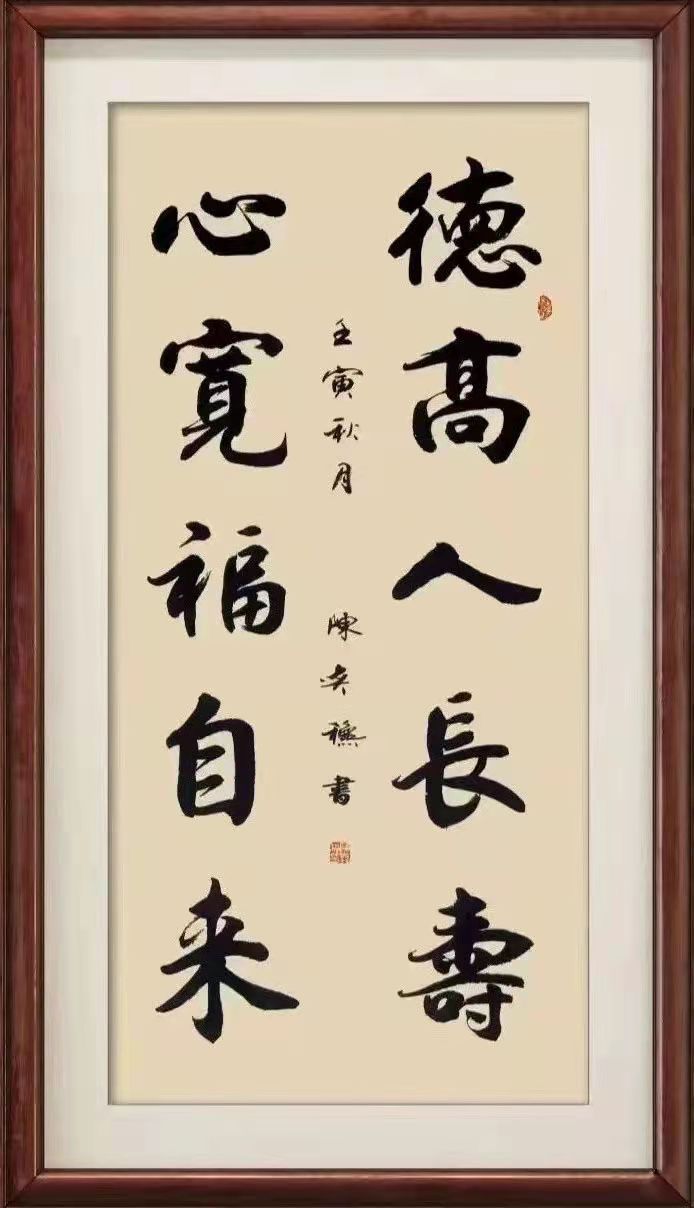 德高人長壽
心寬福自来
壬寅秋月
陳 書